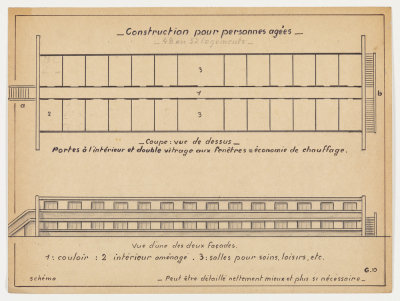 _ Construction pour personnes agées _
3
1
a
b
2
3
_ Coupe : vue de dessus _
Portes à l'intérieur et double vitrage aux fenêtres = économie de chauffage.
Vue d'une des deux façades.
1 : couloir : 2 intérieur aménagé . 3 : salles pour soins, loisirs, etc.
schéma
_ Peut être détaillé nettement mieux et plus si nécessaire _